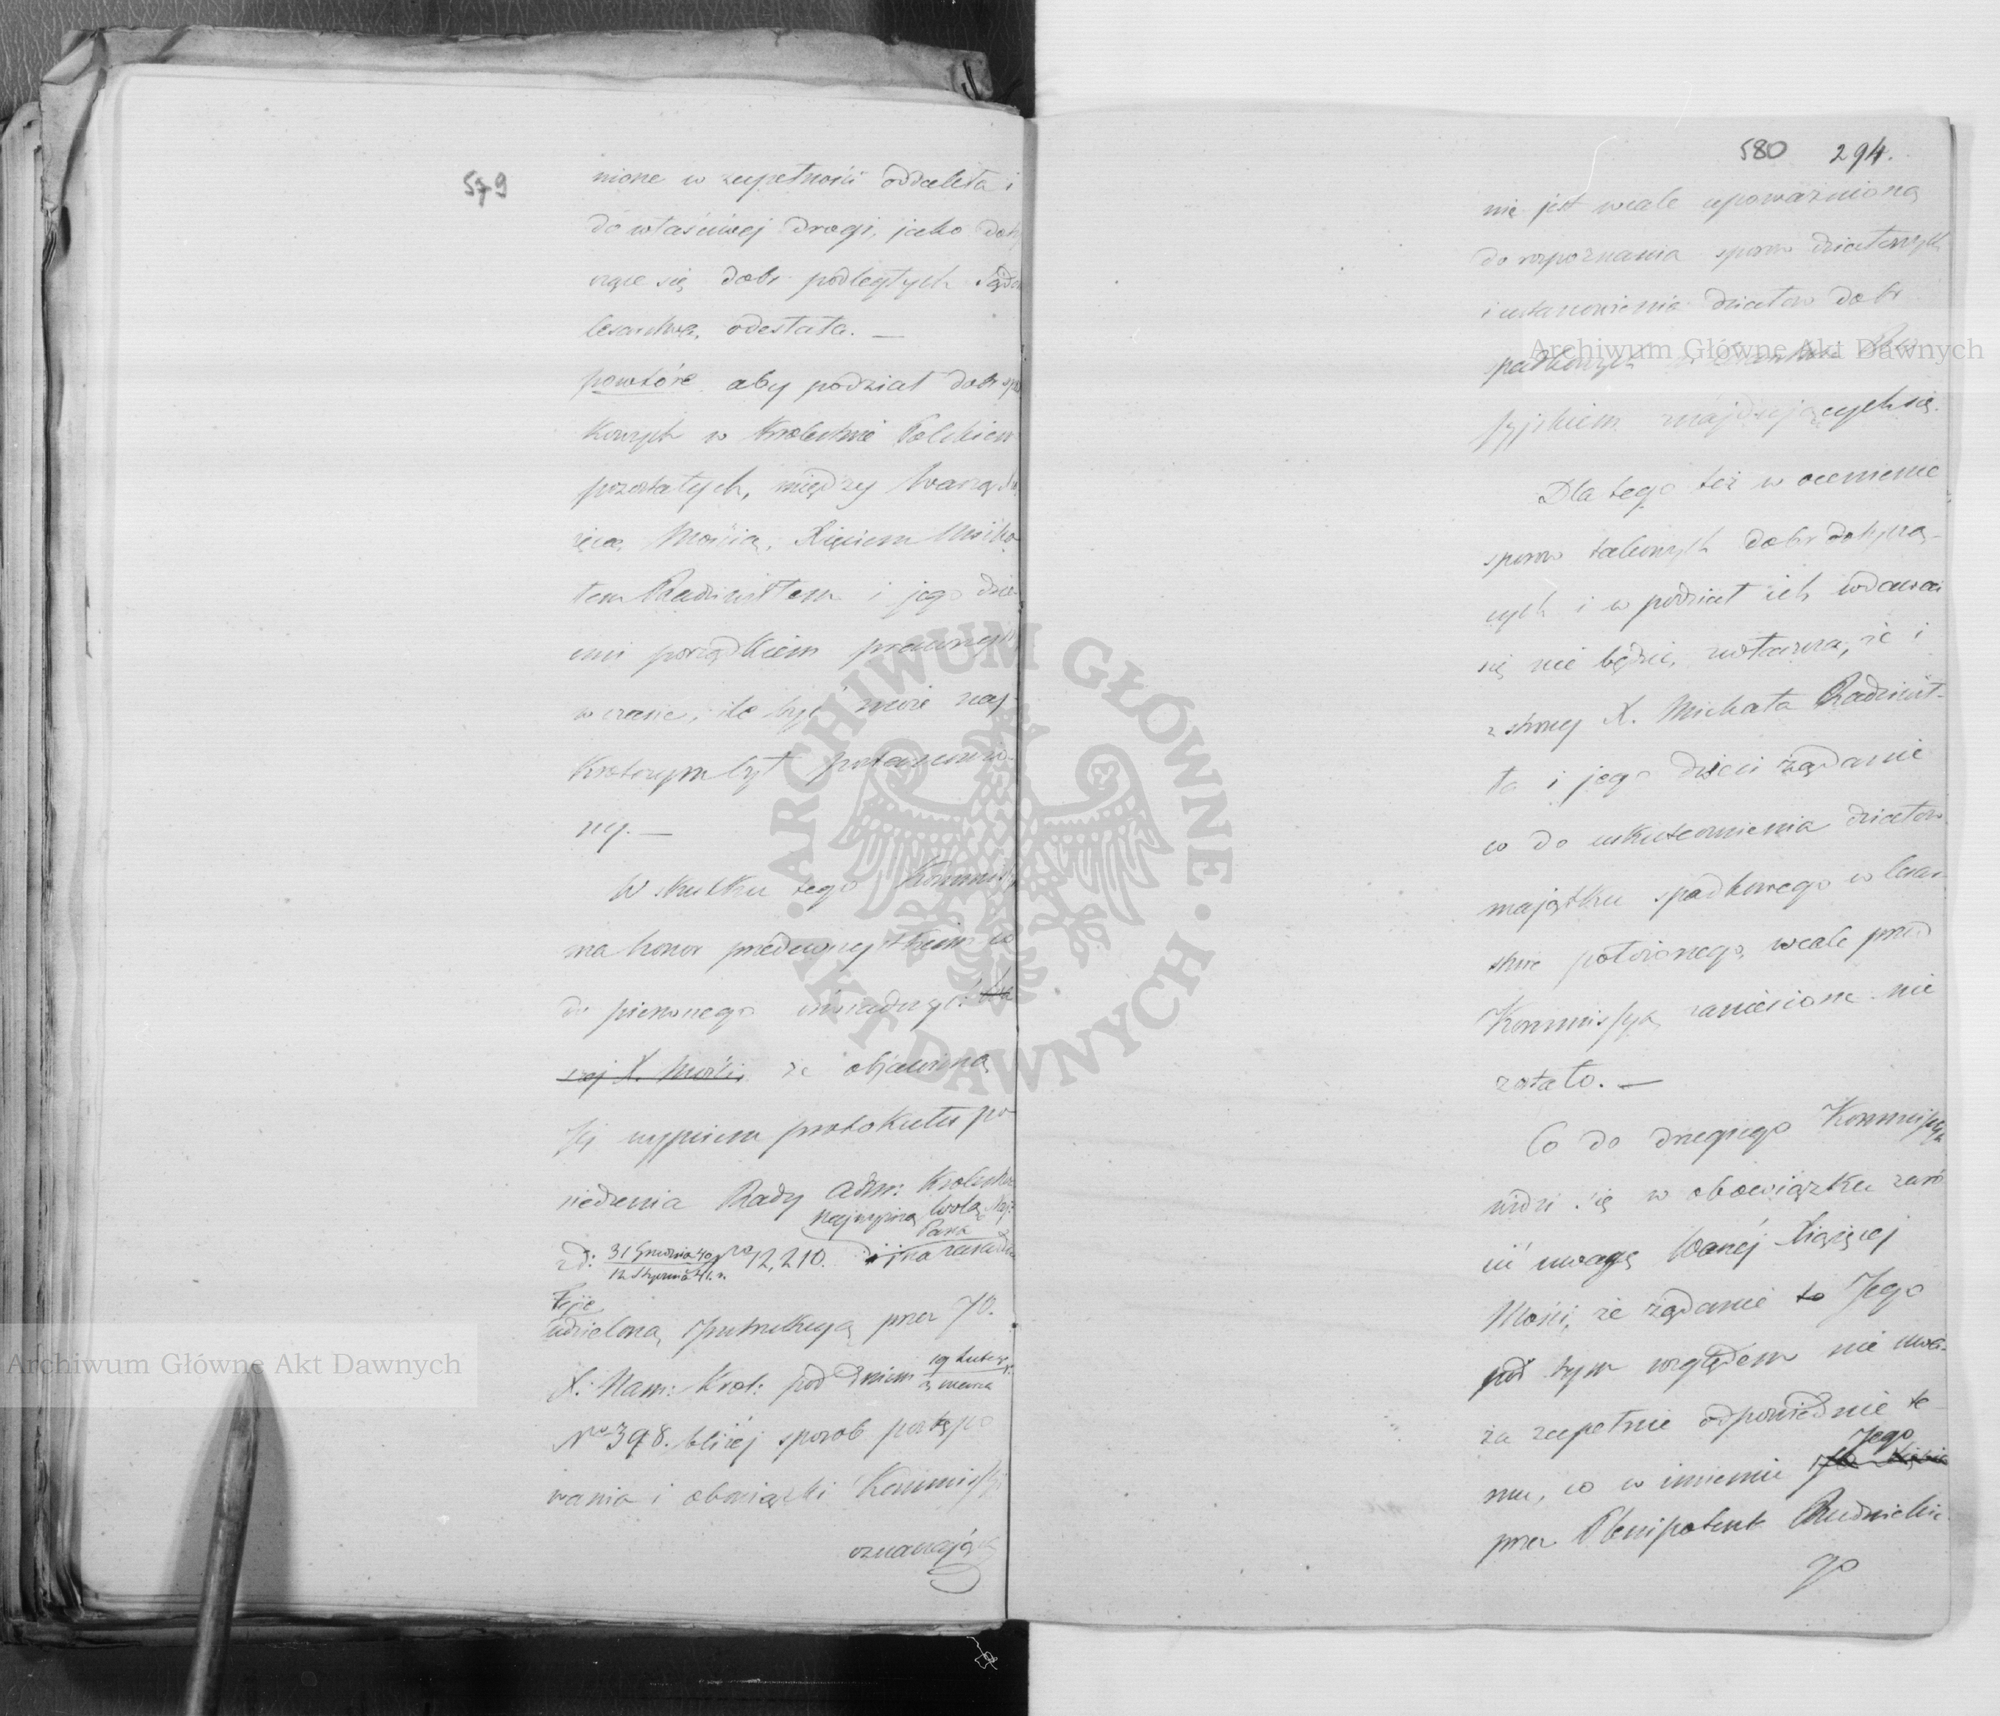 579
nione w zupełności oddaliła i
do właściwej drogi, jako doty
czące się dóbr podległych Sądom
Cesarstwa, odesłała. —
powtóre aby podział dóbr spad
kowych w Królestwie Polskiem
pozostałych, między Waszą Xią
żęcą Mością, Xięciem Micha
łem Radziwiłłem i jego dzie
ćmi porządkiem prawnym
w czasie, ile być może naj
krótszym był postanowio
ny. —
W skutku tego Kommissya
ma honor przedewszystkiem co
do pierwszego oświadczyć
szej X. Mości, że objawioną
Jej wypisem protokułu po
siedzenia Rady Adm: Królestwa
Najwyższą Wolą Naj:
Pana
z d: 31 Grudnia 40/12 Stycznia 41 r. No 12,210. i na zasadzie
tejże
udzieloną Instrukcyą przez JO.
X: Nam: Król: pod dniem 19 Lutego/3 marca
No 398. bliżej sposób postępo
wania i obowiązki Kommissyi
oznaczającą
580 294.
nie jest wcale upoważnioną
do rozpoznania sporów działowych
i ustanowienia działów dóbr
spadkowych w Cesarstwie Ros
syjskiem znajdujących się.
Dla tego też w ocenienie
sporów takowych dóbr dotyczą-
cych i w podział ich wdawać
się nie będzie, zwłaszcza, że i
z strony X. Michała Radziwił-
ła i jego dzieci żądanie
co do uskutecznienia działów
majątku spadkowego w Cesar
stwie położonego, wcale przed
Kommissyą zaniesione nie
zostało. —
Co do drugiego Kommissya
widzi się w obowiązku zwró
cić uwagę Waszéj Xiążęcej
Mości, że żądanie to Jego
pod tym względem nie uwa-
ża zupełnie odpowiednie te
mu, co w imieniu Jego
przez Plenipotenta Rudnickie
go
Archiwum Główne Akt Dawnych
Archiwum Główne Akt Dawnych
ARCHIWUM GŁÓWNE · AKT DAWNYCH ·